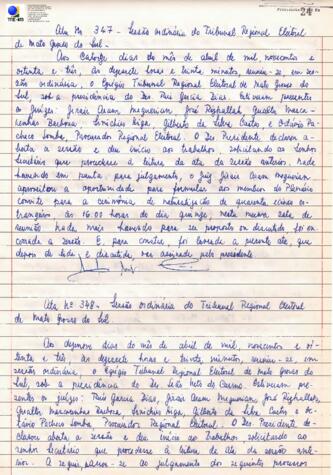 TRE-MS
Ata Nº 347 - Sessão ordinária do Tribunal Regional Eleitoral
de Mato Grosso do Sul.
Aos catorze dias do mês de abril de mil, novecentos e
oitenta e três, às dezesete horas e trinta minutos, reuniu-se, em ses-
são ordinária, o Egrégio Tribunal Regional Eleitoral de Mato Grosso do
Sul sob a presidência do Des. Rui Garcia Dias. Estiveram presentes
os Juízes: Jesus Rizkallah, Gualter Masca-
renhas Barbosa, Gilberto da Silva Castro e Octávio Pa-
checo Lomba, Procurador Regional Eleitoral. O Des. Presidente declarou
aberta a sessão e deu início aos trabalhos, solicitando ao senhor
Secretário que procedesse a leitura da ata da sessão anterior. Nada
havendo em pauta para julgamento, o Juiz
aproveitou a oportunidade para formular aos membros do Plenário
convite para a cerimônia de naturalização de quarenta
trangeiros, às 16:00 horas do dia quinze, neste mesmo, sala de
reunião. Nada mais havendo para ser proposto ou discutido, foi en-
cerrada a sessão. E, para constar, foi lavrada a presente ata, que
depois de lida e discutida, vai assinada pelo presidente
Ata nº 348 - Sessão ordinária do Tribunal Regional Eleitoral
de Mato Grosso do Sul
Aos dezenove dias do mês de abril de mil, novecentos e oi-
tenta e três, às dezesete horas e trinta minutos, reuniu-se, em
sessão ordinária, o Egrégio Tribunal Regional Eleitoral de Mato Grosso do
Sul, sob a presidência do Des. Leão Neto do Carmo. Estiveram pre-
sentes os Juízes: Rui Garcia Dias, Rizkallah,
Gualter Mascarenhas Barbosa, Gilberto da Silva Castro e Oc-
távio Pacheco Lomba, Procurador Regional Eleitoral. O Des. Presidente, de-
clarou aberta a sessão e deu início aos trabalhos solicitando ao
senhor Secretário que procedesse à leitura da ata da sessão ante-
rior. A seguir passou-se ao julgamento dos seguintes processos